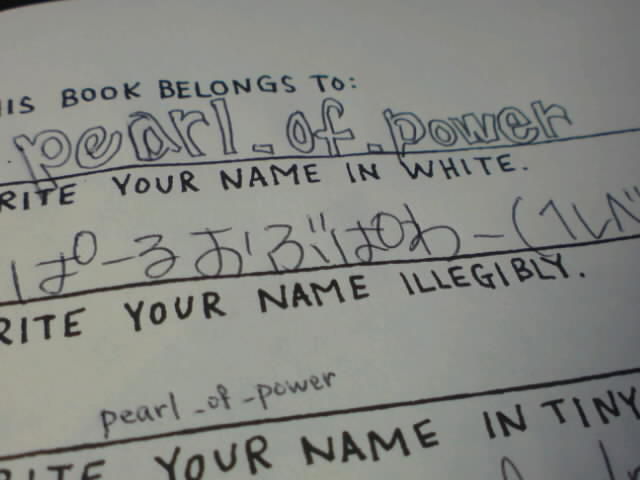 HIS BOOK BELONGS TO:
pearl_of_power
RITE YOUR NAME IN WHITE.
ぱーるおぶぱわー(
RITE YOUR NAME ILLEGIBLY.
pearl_of_power
RITE YOUR NAME IN TINY